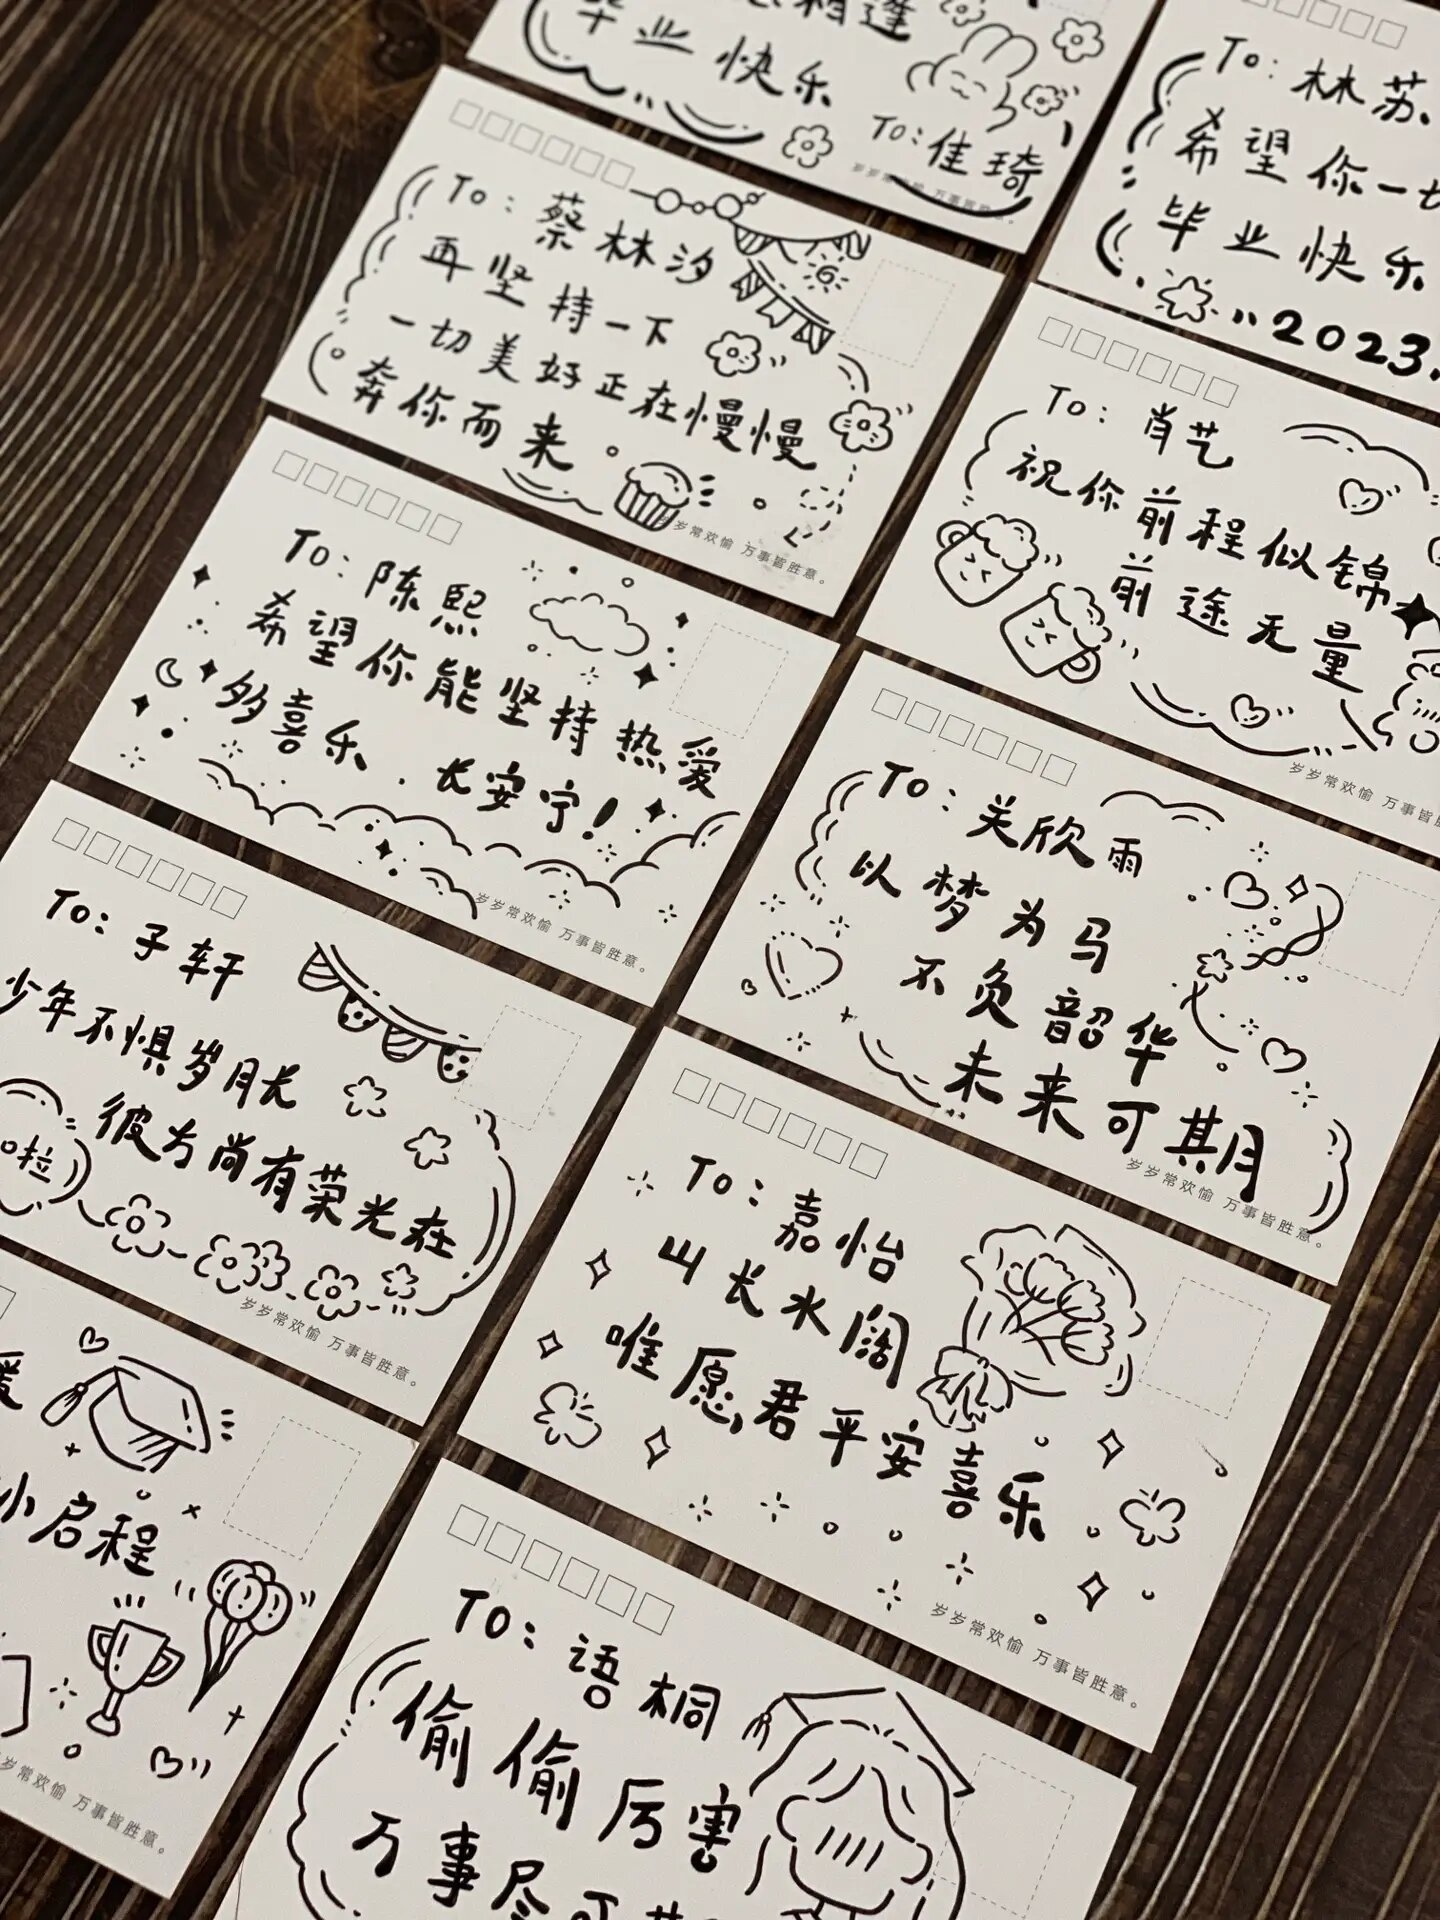 毕业快乐
To:佳琦
岁岁常欢愉 万事皆胜意。
To:林苏
希望你一切
毕业快乐
2023.
To:蔡林汐
再坚持一下
一切美好正在慢慢
奔你而来
岁常欢愉 万事皆胜意。
To:肖艺
祝你前程似锦
前途无量
岁岁常欢愉 万事皆胜
To:陈熙
希望你能坚持热爱
多喜乐.长安宁!
岁岁常欢愉 万事皆胜意。
To:关欣雨
以梦为马
不负韶华
未来可期
岁岁常欢愉 万事皆胜意。
To:子轩
少年不惧岁月长
彼方尚有荣光在
啦
岁岁常欢愉 万事皆胜意。
To:嘉怡
山长水阔
唯愿君平安喜乐
岁岁常欢愉 万事皆胜意。
小启程
岁常欢愉 万事皆胜意。
To:语桐
偷偷厉害
万事尽可